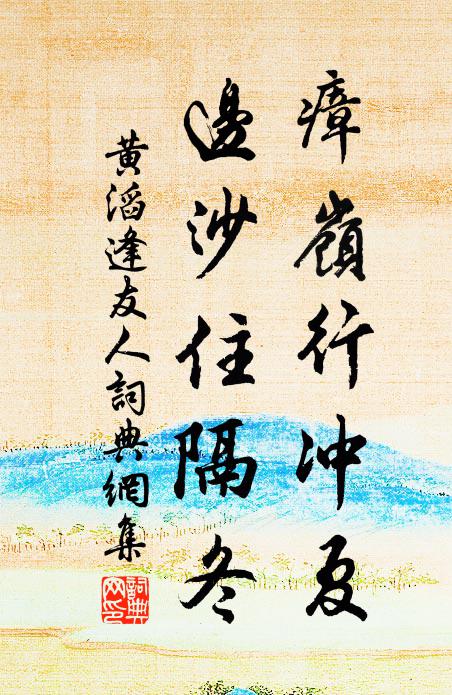 瘴嶺行沖夏
邊沙住隔冬
黃滔逢友人詞典網集
詞典網印